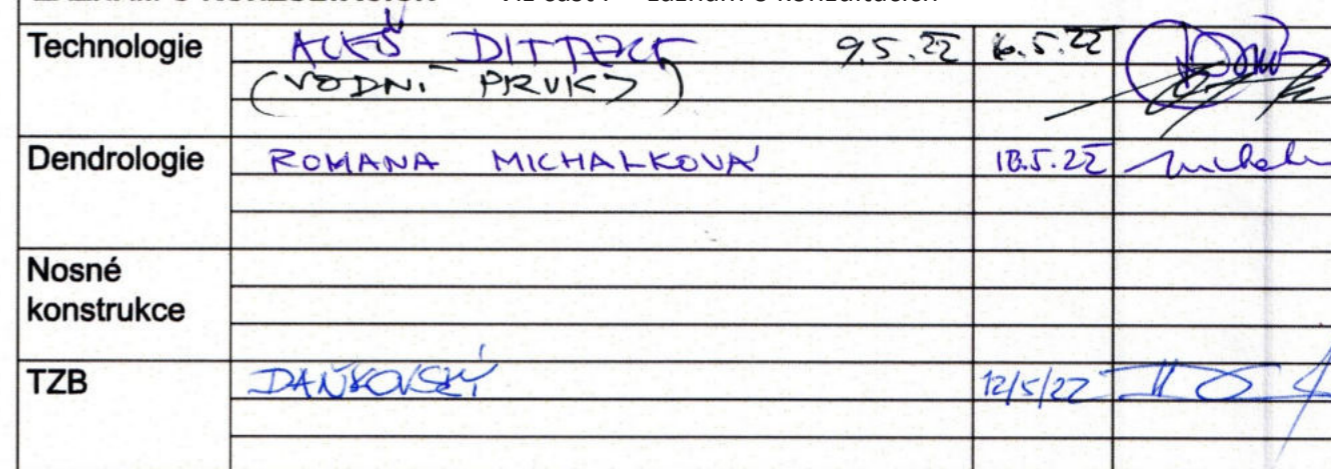 Technologie ALEŠ DITTRICH 9.5.22 6.5.22
(VODNÍ PRVKY)
Dendrologie ROMANA MICHALKOVÁ 18.5.22
Nosné
konstrukce
TZB DAŇKOVSKÝ 12/5/22